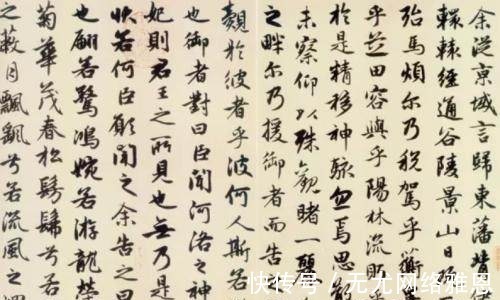 余從京域言歸東藩
轘轅經通谷陵景山日
殆馬煩尔乃税駕乎蘅
乎芝田容與乎陽林流盼
於是精移神駭忽焉思
未察仰以殊觀睹一麗
之畔尔乃援御者而告
覿於彼者乎彼何人斯若
也御者對曰臣聞河洛之神
妃則君王之所見也無乃是
狀若何臣願聞之余告之曰
也翩若驚鴻婉若游龍榮
菊華茂春松髣髴兮若
之蔽月飄颻兮若流風之
快传号 / 无尤网络雅恩